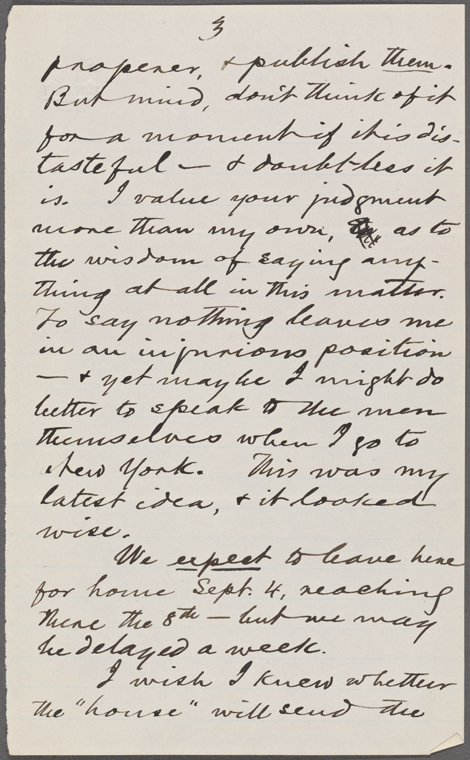 3
propener, & publish them.
But mind, don't think of it
for a moment if it is dis-
tasteful — & doubtless it
is. I value your judgment
more than my own, as to
the wisdom of saying any-
thing at all in this matter.
To say nothing leaves me
in an injurious position
— & yet maybe I might do
better to speak to the men
themselves when I go to
New York. This was my
latest idea, & it looked
wise.
We expect to leave here
for home Sept. 4, reaching
there the 8th — but we may
be delayed a week.
I wish I knew whether
the "house" will send the